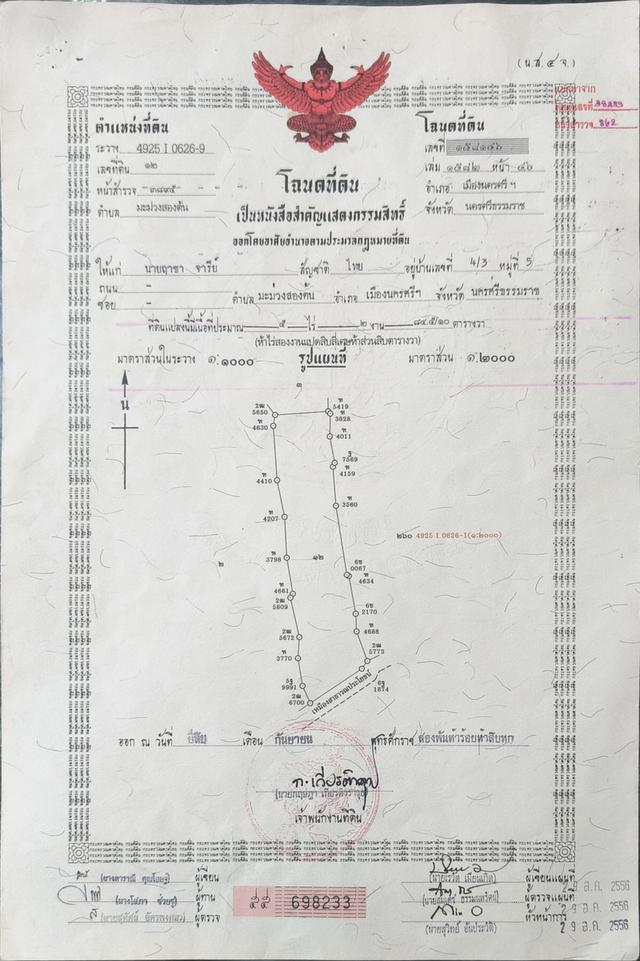 (น.ส. ๔ จ.)
ตำแหน่งที่ดิน
ระวาง 4925 I 0626-9
เลขที่ดิน ๑๒
หน้าสำรวจ ๓๘๙๕
ตำบล มะม่วงสองต้น
โฉนดที่ดิน
เลขที่ ๑๕๘๑๔๖
เล่ม ๑๕๘๒ หน้า ๔๖
อำเภอ เมืองนครศรีฯ
จังหวัด นครศรีธรรมราช
โฉนดที่ดิน
เป็นหนังสือสำคัญแสดงกรรมสิทธิ์
ออกโดยอาศัยอำนาจตามประมวลกฎหมายที่ดิน
ให้แก่ นายฤาชา จารีย์ สัญชาติ ไทย อยู่บ้านเลขที่ 4/3 หมู่ที่ 5
ถนน -
ซอย - ตำบล มะม่วงสองต้น อำเภอ เมืองนครศรีฯ จังหวัด นครศรีธรรมราช
ที่ดินแปลงนี้มีเนื้อที่ประมาณ ๕ ไร่ ๒ งาน ๘๔.๕/๑๐ ตารางวา
(ห้าไร่สองงานแปดสิบสี่เศษห้าส่วนสิบตารางวา)
มาตราส่วนในระวาง ๑:๑๐๐๐ รูปแผนที่ มาตราส่วน ๑:๒๐๐๐
น
๓
2ฒ
5650
ท
5419
ท
3828
ท
4630
ท
4011
ฐ
7569
ท
4159
ท
4410
ท
3560
ท
4207
๒๖๐ 4925 I 0626-1(๑:๒๐๐๐)
๒
๑๒
ท
3798
6ช
0067
ท
4634
ท
4661
2ฒ
5809
6ช
2170
2ฒ
5672
ท
4688
ท
3770
2ฒ
5773
5ฐ
9991
6ฐ
1874
2ฒ
6700
เหมืองสาธารณประโยชน์
ออก ณ วันที่ ยี่สิบ เดือน กันยายน พุทธศักราช สองพันห้าร้อยห้าสิบหก
เจ้าพนักงานที่ดิน
ผู้เขียน
ผู้ทาน
ผู้ตรวจ
698233
ผู้เขียนแผนที่
ผู้ตรวจแผนที่
หัวหน้าการ
2 9 ส.ค. 2556
2 9 ส.ค. 2556